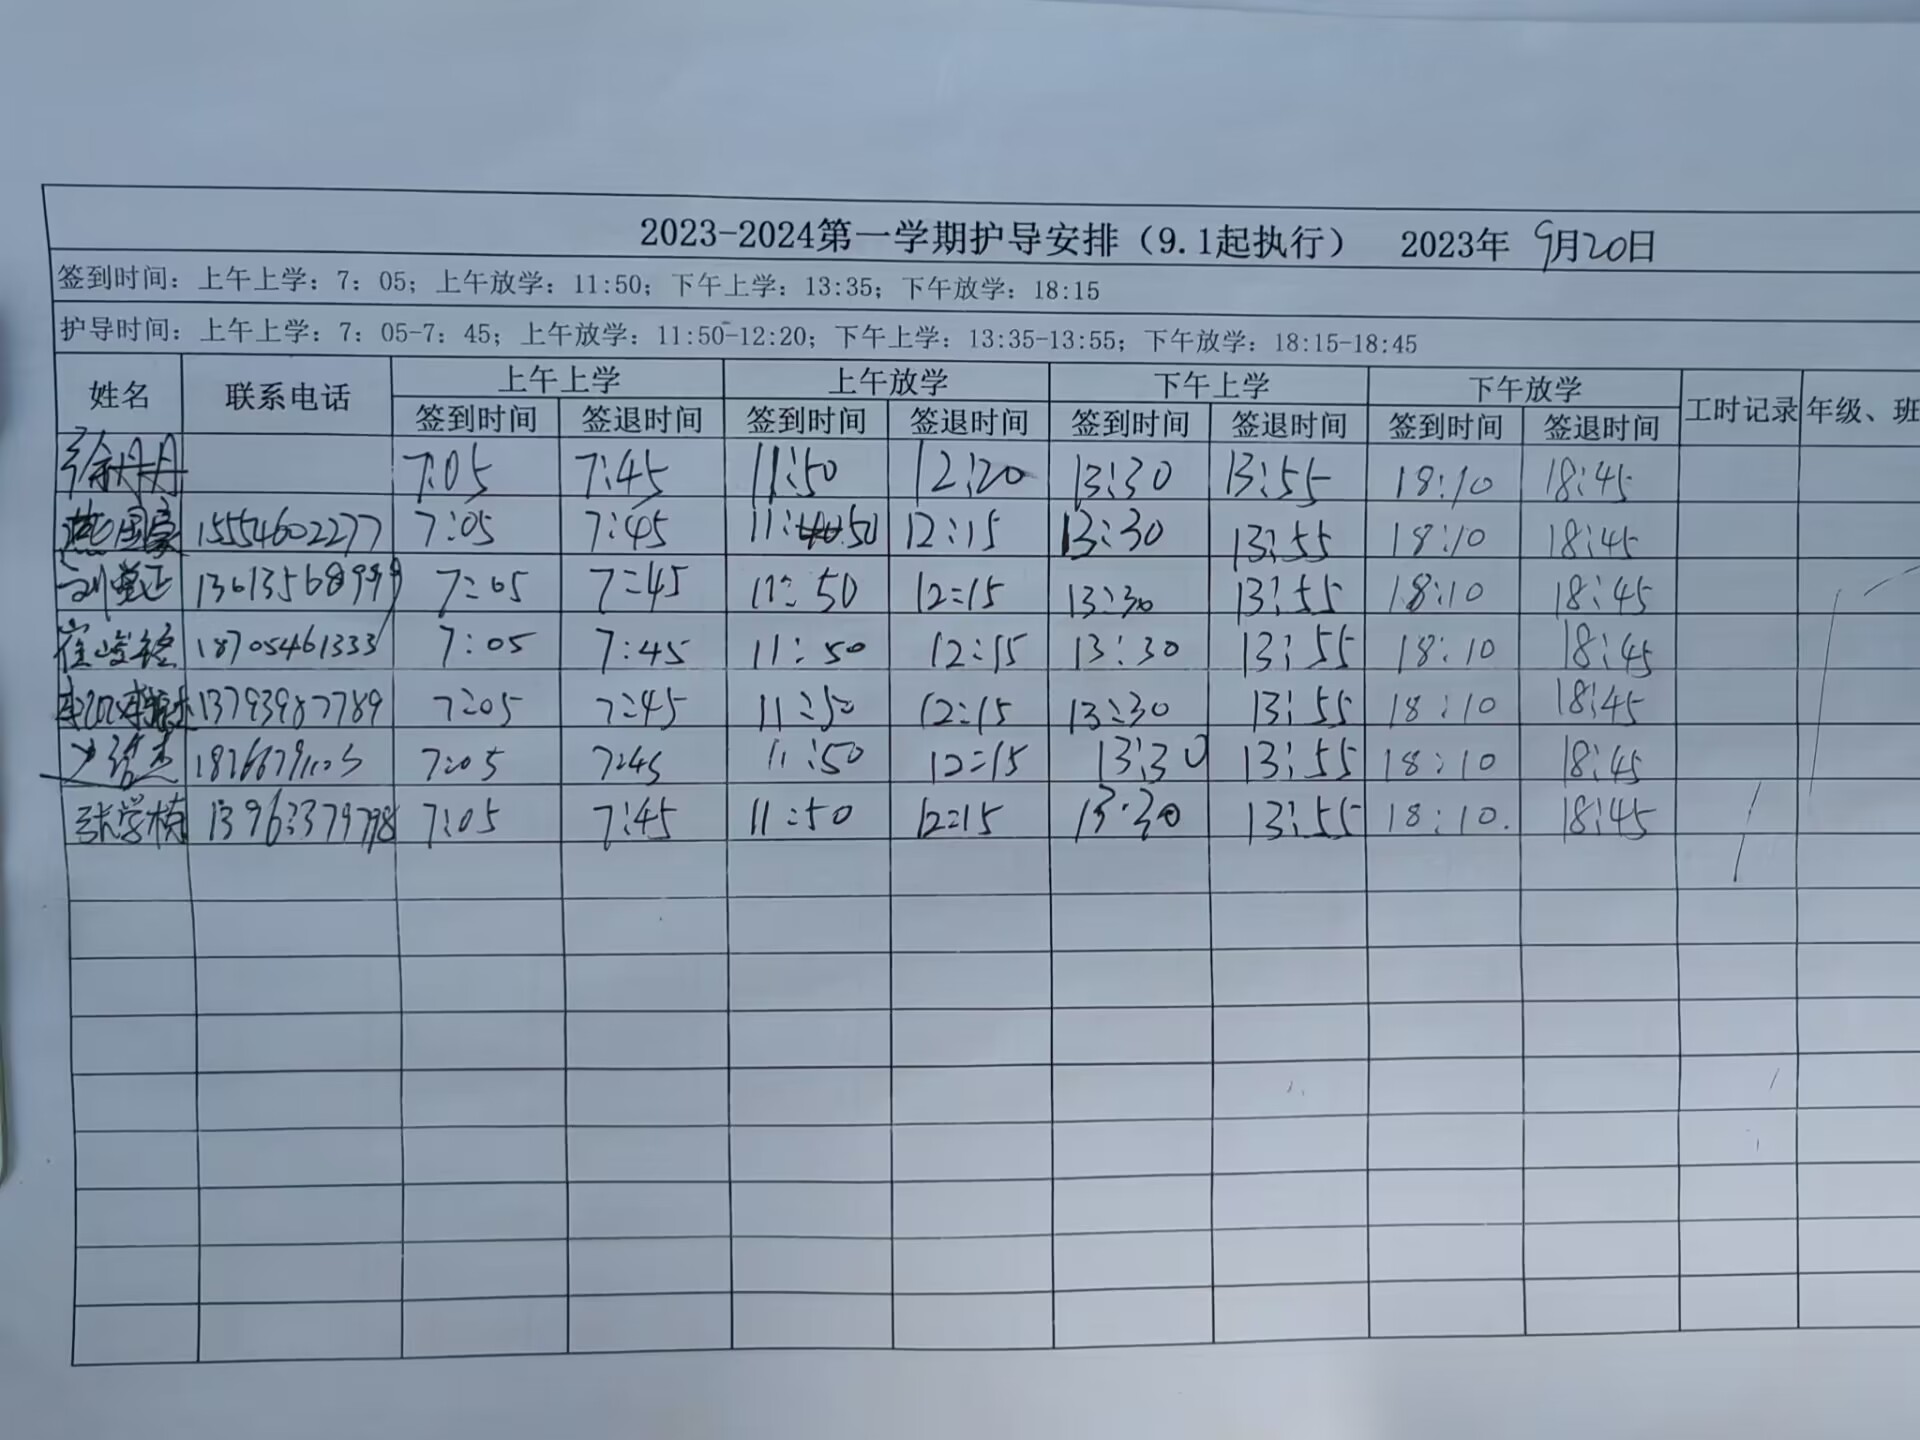 2023-2024第一学期护导安排（9.1起执行） 2023年 9月20日
签到时间：上午上学：7：05；上午放学：11:50；下午上学：13:35；下午放学：18:15
护导时间：上午上学：7：05-7：45；上午放学：11:50-12:20；下午上学：13:35-13:55；下午放学：18:15-18:45
姓名 联系电话 上午上学 上午放学 下午上学 下午放学 工时记录 年级、班
签到时间 签退时间 签到时间 签退时间 签到时间 签退时间 签到时间 签退时间
徐丹丹 7:05 7:45 11:50 12:20 13:30 13:55 18:10 18:45
15554602277 7:05 7:45 11:50 12:15 13:30 13:55 18:10 18:45
7:05 7:45 11:50 12:15 13:30 13:55 18:10 18:45
崔峻铭 18705461333 7:05 7:45 11:50 12:15 13:30 13:55 18:10 18:45
13793987789 7:05 7:45 11:50 12:15 13:30 13:55 18:10 18:45
7:05 7:45 11:50 12:15 13:30 13:55 18:10 18:45
张学楠 13963379798 7:05 7:45 11:50 12:15 13:30 13:55 18:10. 18:45